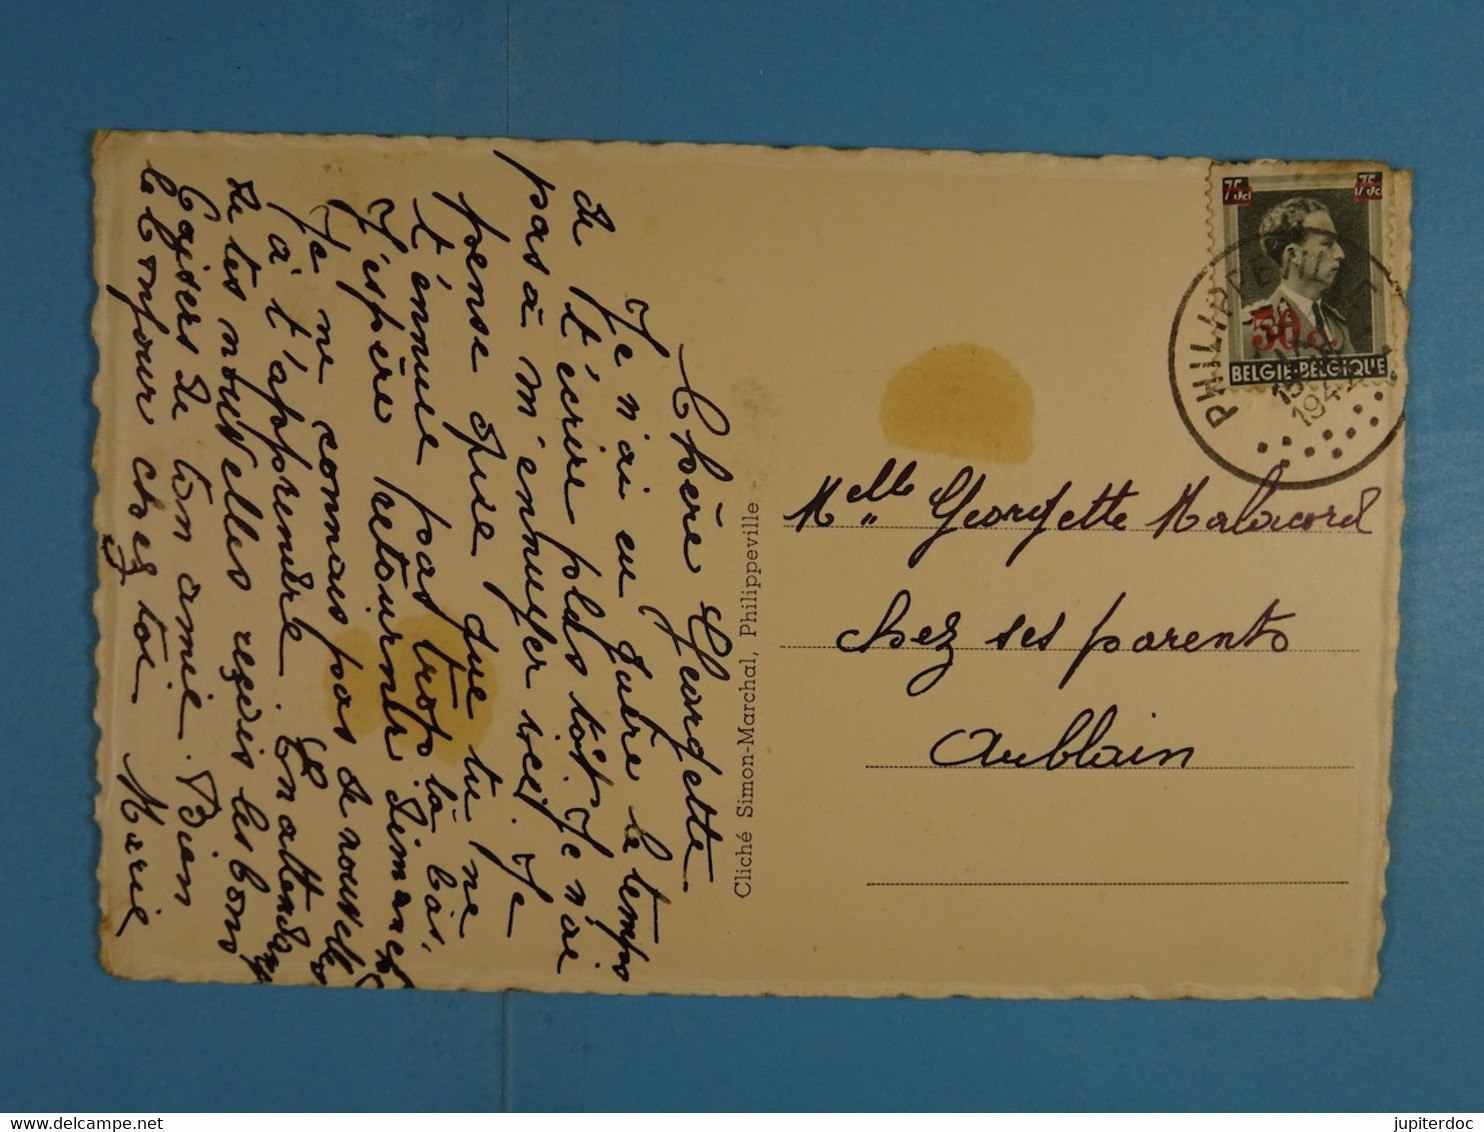 Chère Georgette
Je n'ai eu guère le temps
de t'écrire plus tôt. Je n'ai
pas à m'ennuyer ici. Je
pense que que tu ne
t'ennuie pas trop là-bas,
J'espère retourner dimanche
Je ne connais pas de nouvelles
à t'apprendre. En attendant
de tes nouvelles reçois les bons
baisers de ton amie. Bien
le bonjour chez toi Marie
Cliché Simon-Marchal, Philippeville
75c 75c
50c
BELGIE-BELGIQUE
PHILIPPEVILLE
194
Melle Georgette Malacord
chez ses parents
Aublain
jupiterdoc